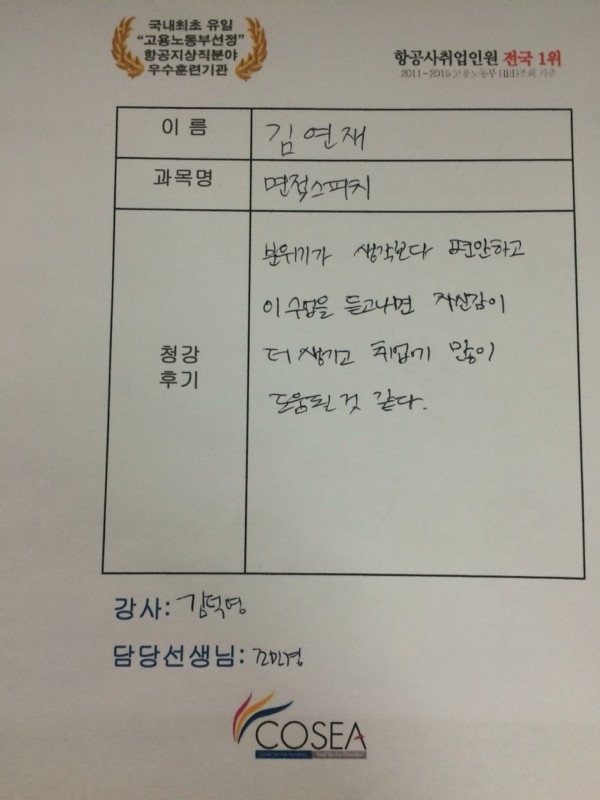 국내최초 유일
"고용노동부선정"
항공지상직분야
우수훈련기관
항공사취업인원 전국 1위
2011~2015 고용노동부 HRD조회 기준
이 름
김연재
과목명
면접스피치
청강
후기
분위기가 생각보다 편안하고
이 수업을 듣고나면 자신감이
더 생기고 취업에 많이
도움될 것 같다.
강사: 김덕영
담당선생님:
COSEA